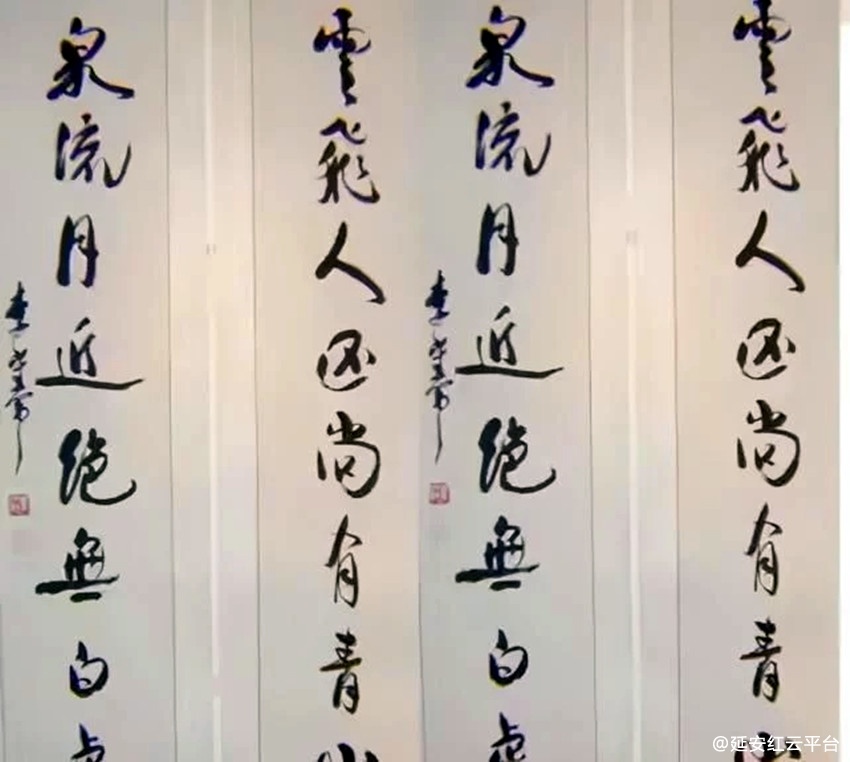 雲飛人尚有青山
泉流月近絕無白
雲飛人尚有青山
泉流月近絕無白
@延安红云平台